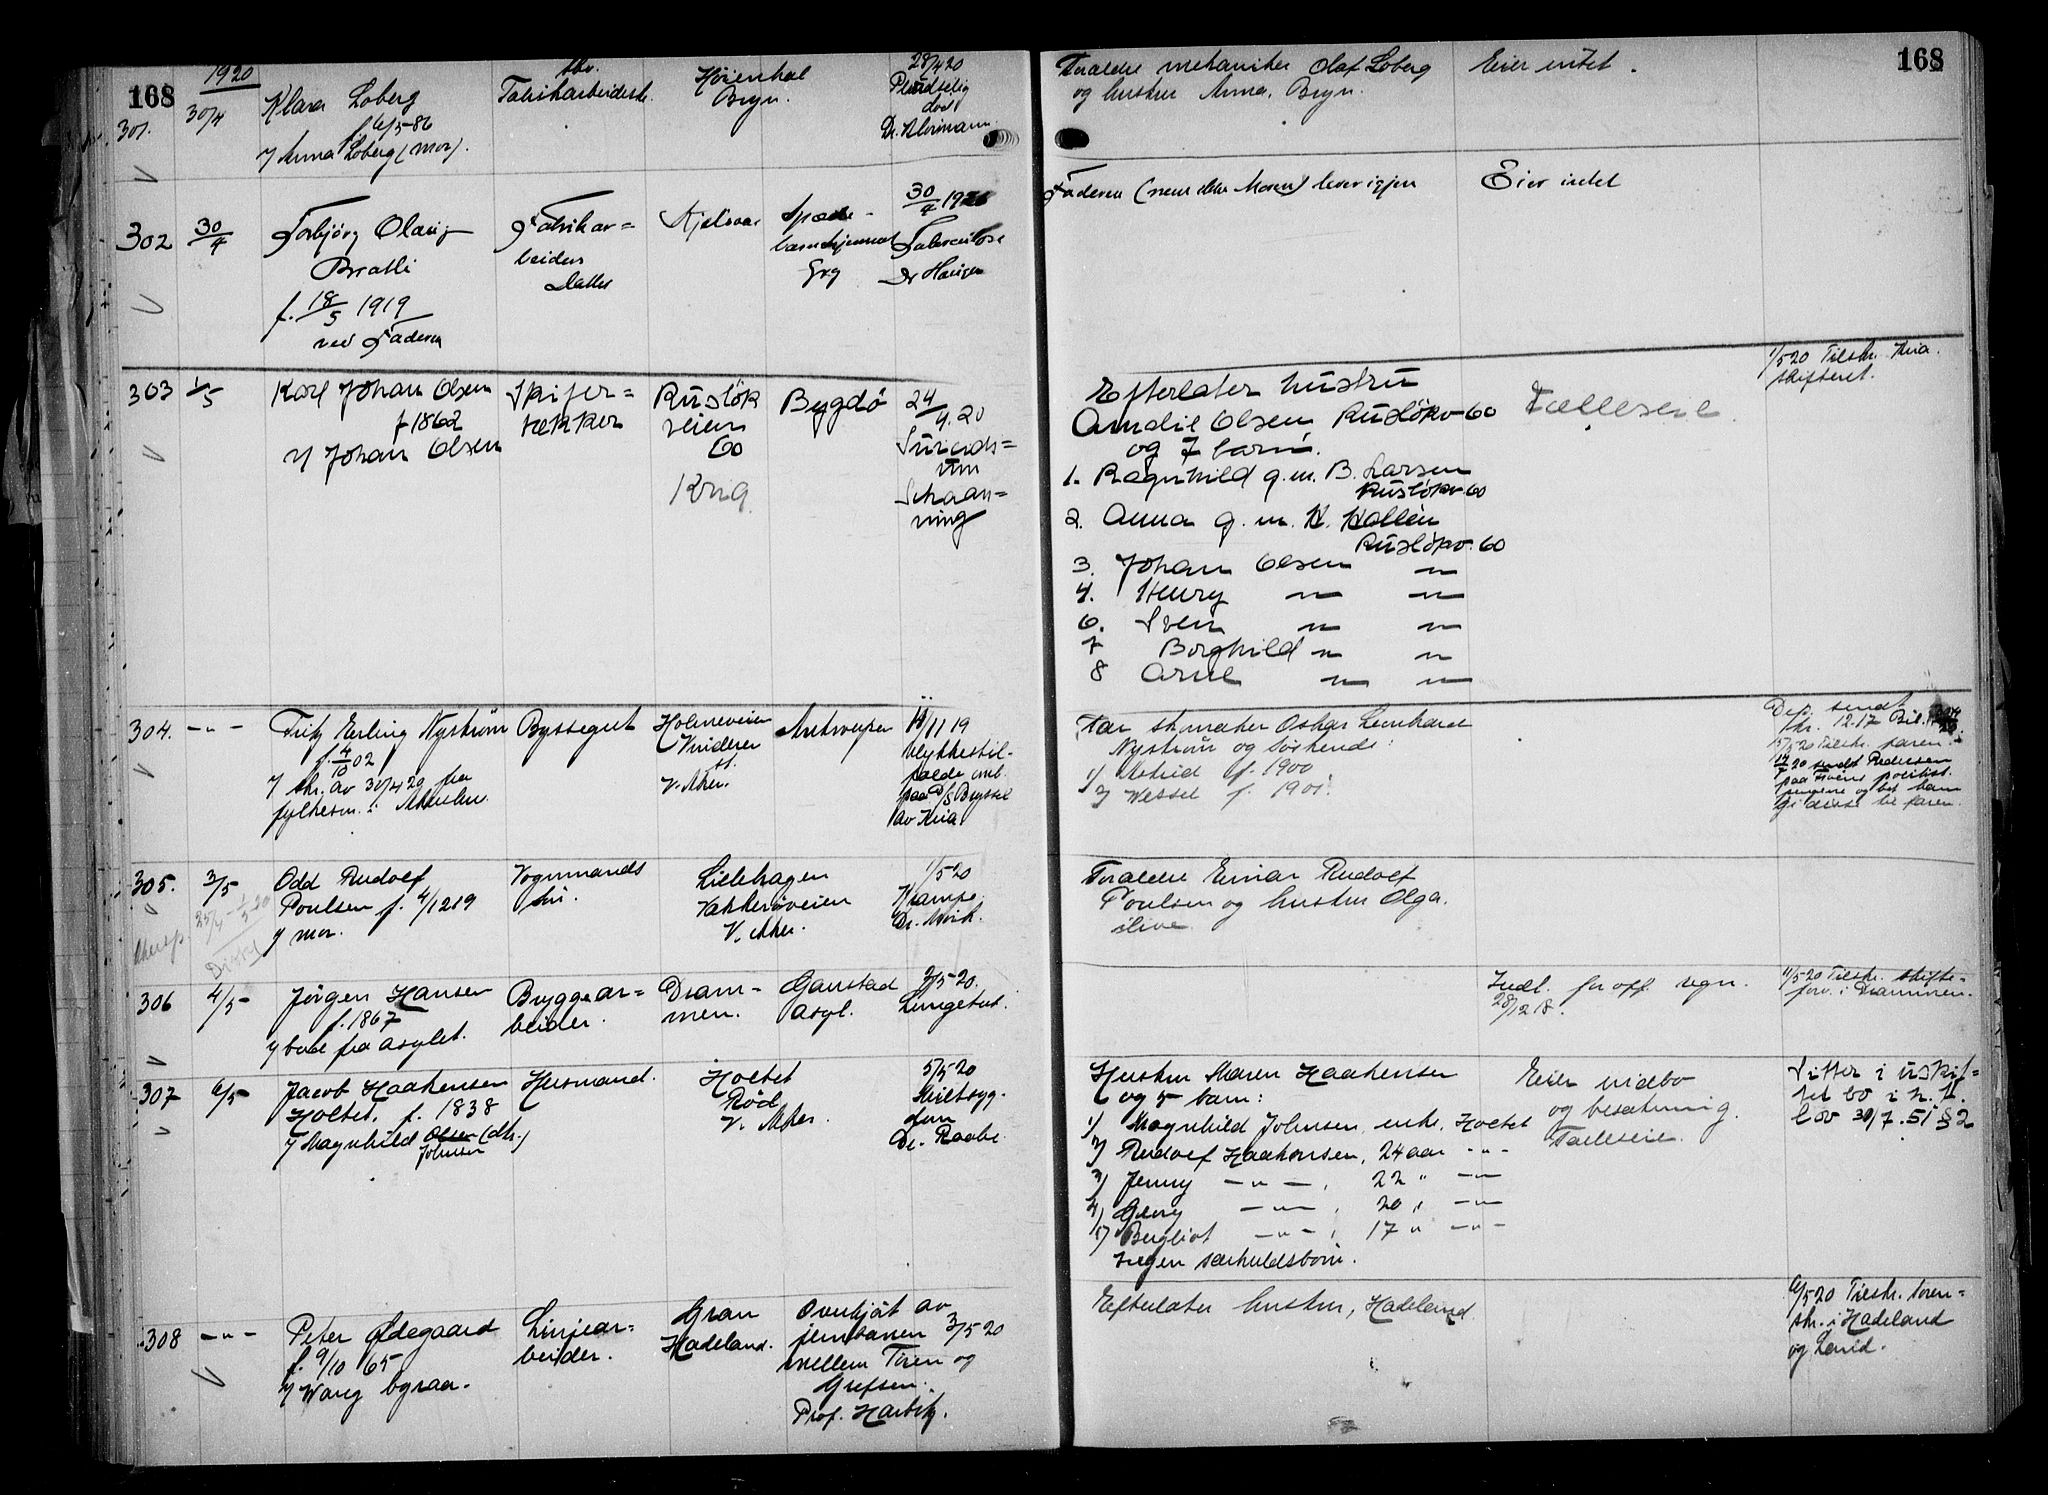 168
1920
168
301.
30/4
Klara Loberg
f 6/5-86
v/ Anna Loberg (mor).
Fabrikarbeidersk.
Høienhal
Bryn.
28/4 20
Pludselig
død
Forældre mekaniker Olaf Loberg
og hustru Anna, Bryn.
Eier intet.
302
30/4
Torbjørg Olaug
Bratli
f. 18/5 1919
ved Faderen
Fabrikar=
beiders
datter
Kjelsaas
Spæde-
barnshjemmet
30/4 1920
Tuberculose
Faderen (men ikke Moren) lever igjen
Eier intet
303
1/5
Karl Johan Olsen
f 1862
v/ Johan Olsen
Skifer=
tækker
Rusløk
veien
60
Krag
Bygdø
24/4.20
Suicidi=
um
Schaan=
ning
Efterlater hustru
Amalie Olsen Rusløkv 60
og 7 barn.
1. Ragnhild g.m. B. Larsen
Rusløkv 60
2. Anna g.m. K. Hallén
Rusløkv. 60
3. Johan Olsen — " —
4. Henry — " — — " —
6. Sven — " — — " —
7 Borghild — " — — " —
8 Arne — " — — " —
Fælleseie
1/5 20 Tilskr. Kria.
skifteret.
304.
— " —
Fritz Erling Nystrøm
f. 4/10 02
v/ skr. av 30/4 20 fra
fylkesm. i Akershus.
Byssegut
Holmeveien
Vinderen
st.
V. Aker.
Antwerpen
11/11 19
Ulykkestil-
fælde omb.
paa D/S Bryssel
av Kria.
Far skomaker Oskar Leonhard
Nystrøm og søskende:
1) Astrid f. 1900.
2) Wessel f. 1901.
Dep. sendt
skr. 12.17
15/5 20 Tilskr. faren.
305.
3/5
Odd Rudolf
Poulsen f. 4/12 19
v/ mor.
Vognmands
søn.
Lillehagen
Vækkerøveien
V. Aker.
1/5 20
Krampe.
Dr. Wiik.
Forældre Einar Rudolf
Poulsen og hustru Olga.
ilive.
306
4/5
Jørgen Hansen
f. 1867
v/ bud fra asylet.
Bryggear=
beider.
Dram-
men.
Gaustad
asyl.
3/5-20.
Lungetub.
Indl. for off. regn.
28/12 18.
11/5 20 Tilskr. skifte-
forv. i Drammen.
307
6/5
Jacob Haakensen
Holtet. f. 1838
v/ Magnhild Olsen (dtr.)
Johnsen
Husmand.
Holtet
Røa
V. Aker.
5/5-20
Hjertesyg-
dom
Dr. Raabe.
Hustru Maren Haakensen
og 5 barn:
1) Magnhild Johnsen, enke, Holtet
2) Rudolf Haakensen, 24 aar - " -
3) Jenny — " — , 22 " — " —
4) Georg — " — , 20 " — " —
5) Bergliot — " — , 17 " — " —
Ingen særkuldsbørn.
Eier indbo
og besætning.
Fælleseie.
Sitter i uskif=
tet bo i h. t.
lov 30/7. 51 § 2
308
— " —
Peter Ødegaard
f. 9/10 65
v/ Wang byraa.
Linjear=
beider.
Gran
Hadeland.
Overkjøt av
jernbanen 3/5 20
mellem Tøien og
Grefsen.
Prof. Harbitz.
Efterlater hustru, Hadeland.
6/5 20 Tilskr. soren=
skr. i Hadeland
og Land.